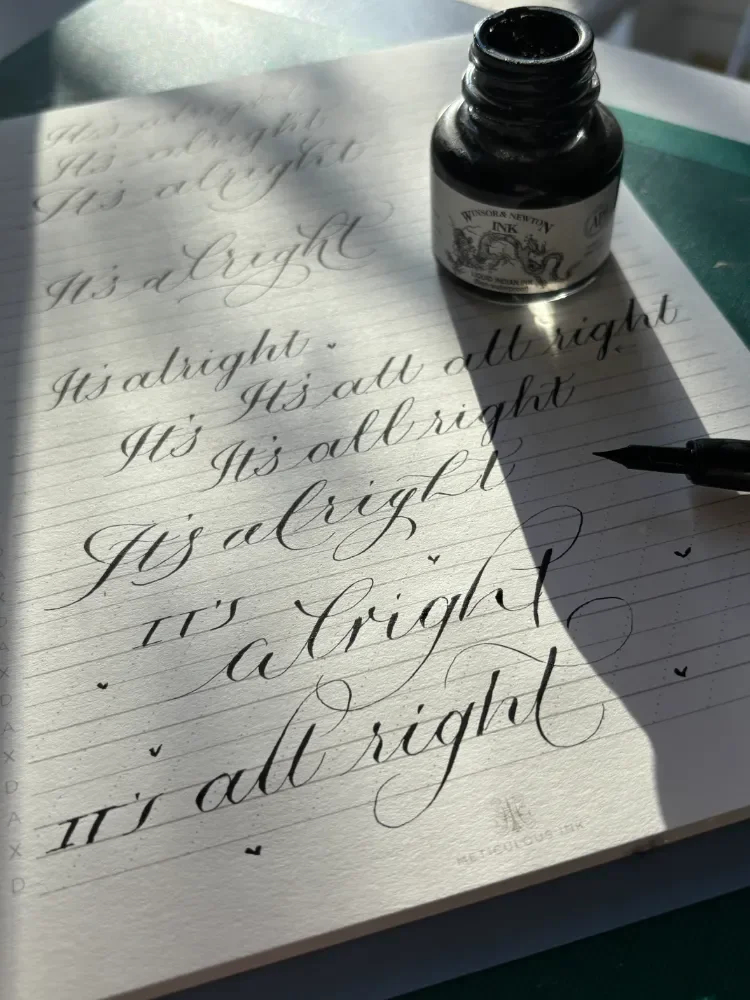 It's alright
It's alright
It's alright
It's alright
It's alright
It's all all right
It's It's all right
It's alright
IT'S
alright
IT'S all right
WINSOR & NEWTON
INK
LIQUID INDIAN INK
METICULOUS INK
A
X
D
A
X
D
A
X
D